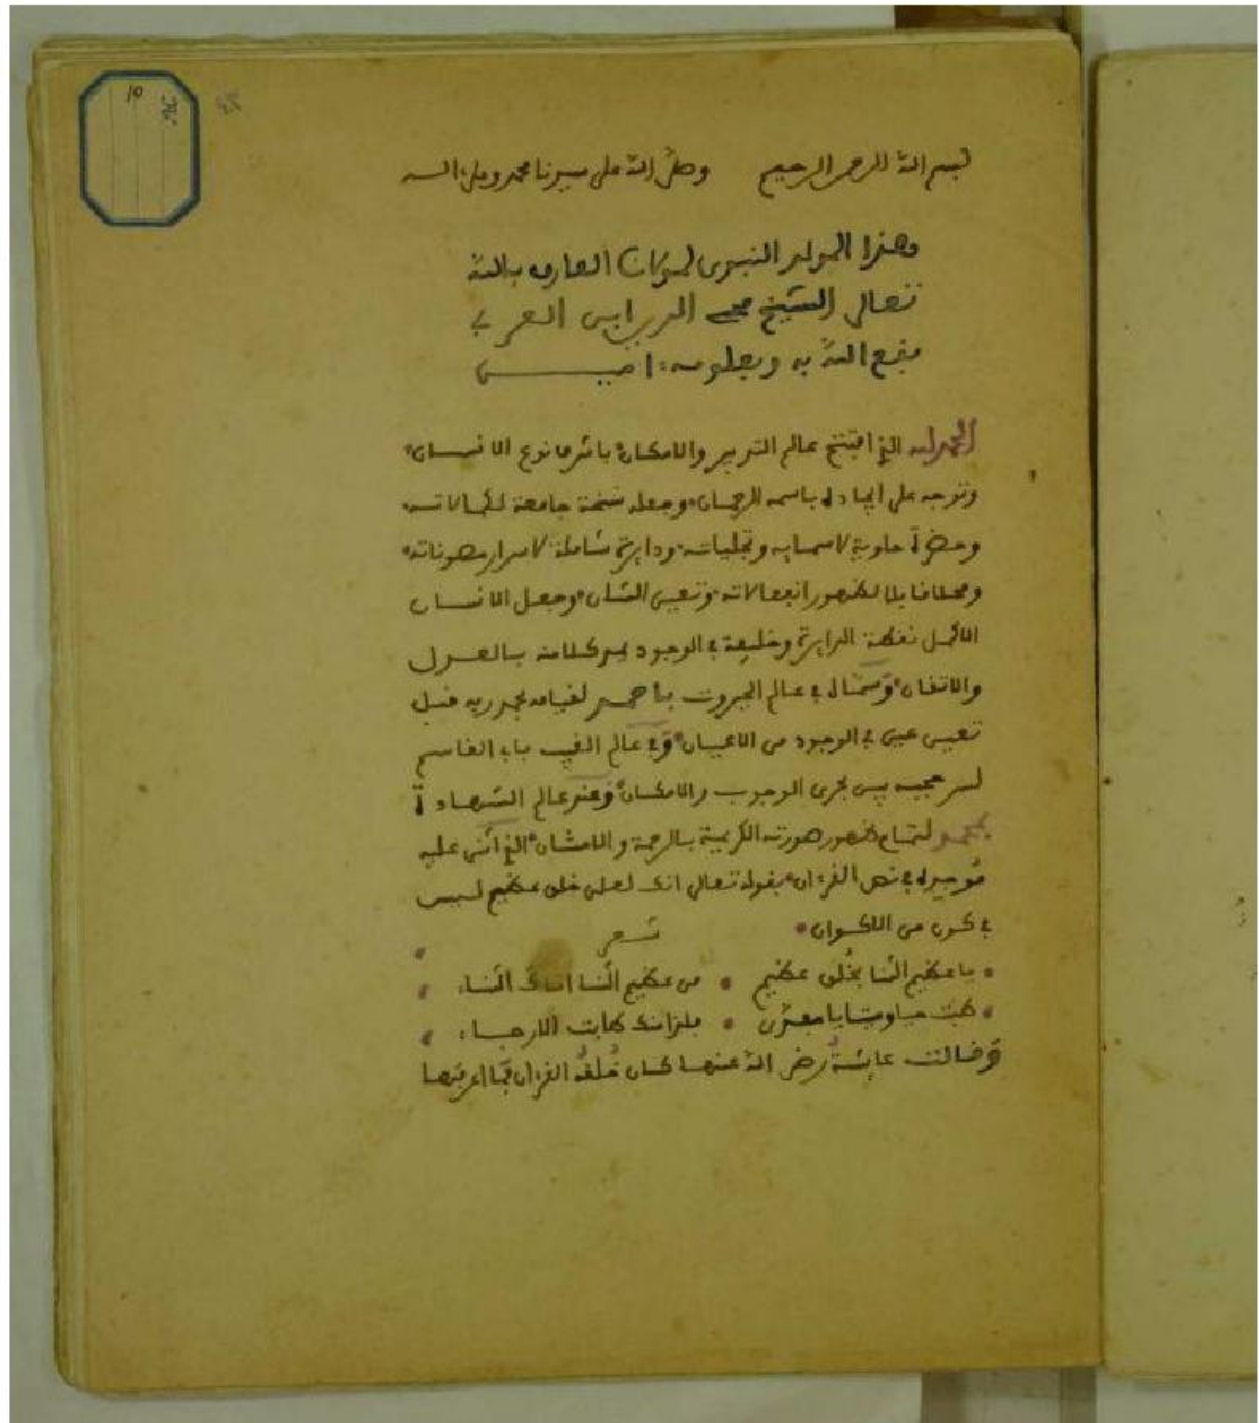 بسم الله الرحمن الرحيم وصلى الله على سيدنا محمد وعلى اله
وهذا المولد النبوي لمولانا العارف بالله
تعالى الشيخ محي الدين ابن العربي
نفع الله به وبعلومه امين
الحمد لله الذي افتتح عالم التدبير والامكان باشرف نوع الانسان
وتوجه على ايجاده باسمه الرحمان وجعله نسخة جامعة لكمالاته
وحضرة حاوية لاسمايه وتجلياته ودايرة شاملة لاسرار مصوناته
ومحلا قابلا لظهور انفعالاته وتعين الشان وجعل الانسان
الاكمل نقطة الدايرة وخليفة في الوجود بالعدل
والاتقان وسماه في عالم الجبروت باحمد لقيامه بحمد ربه قبل
تعيين عين في الوجود من الاعيان وفي عالم الغيب بابي القاسم
لسر عجيب بين بحرى الوجوب والامكان وعند عالم الشهادة
بمحمد لتمام ظهور صورته الكريمة بالرحمة والامتنان الذي اثنى عليه
موجده في نص القرءان بقوله تعالى انك لعلى خلق عظيم ليس
في كون من الاكوان شعر
يا عظيم الثنا بخُلق عظيم من عظيم الثنا اتاك الثناء
طبت حيا وميتا يا مفدى فلذا منك طابت الارجاء
وقالت عايشةُ رضي الله عنها كان خُلقُه القرءان فما اعرفها